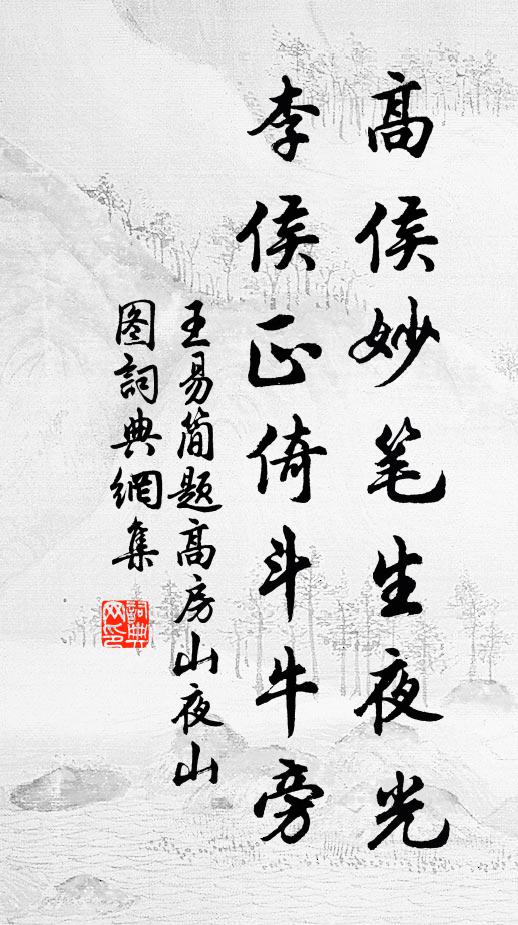 高侯妙笔生夜光
李侯正倚斗牛旁
王易简题高房山夜山
图詞典網集
詞典网印